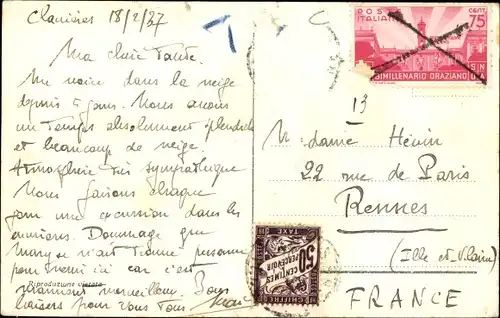 Clavières 18/2/37
Ma chère Tante.
Me voici dans la neige
depuis 5 jours. Nous avons
un temps absolument splendide
et beaucoup de neige.
Atmosphère très sympathique
Nous faisons chaque
jour une excursion dans les
environs. Dommage que
n'ait trouvé personne
pour venir ici car c'est
vraiment merveilleux. Bons
baisers pour vous Tous
Riproduzione vietata
T
POSTE ITALIANE
CENT. 75
BIMILLENARIO ORAZIANO
13
Madame Hévin
22 rue de Paris
Rennes
(Ille et Vilaine)
FRANCE
50
CENTIMES
A PERCEVOIR
CHIFFRE
TAXE